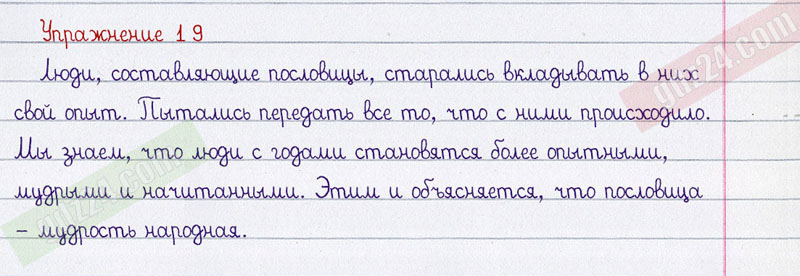 Упражнение 19
Люди, составляющие пословицы, старались вкладывать в них
свой опыт. Пытались передать все то, что с ними происходило.
Мы знаем, что люди с годами становятся более опытными,
мудрыми и начитанными. Этим и объясняется, что пословица
– мудрость народная.
gdz24.com
gdz24.com